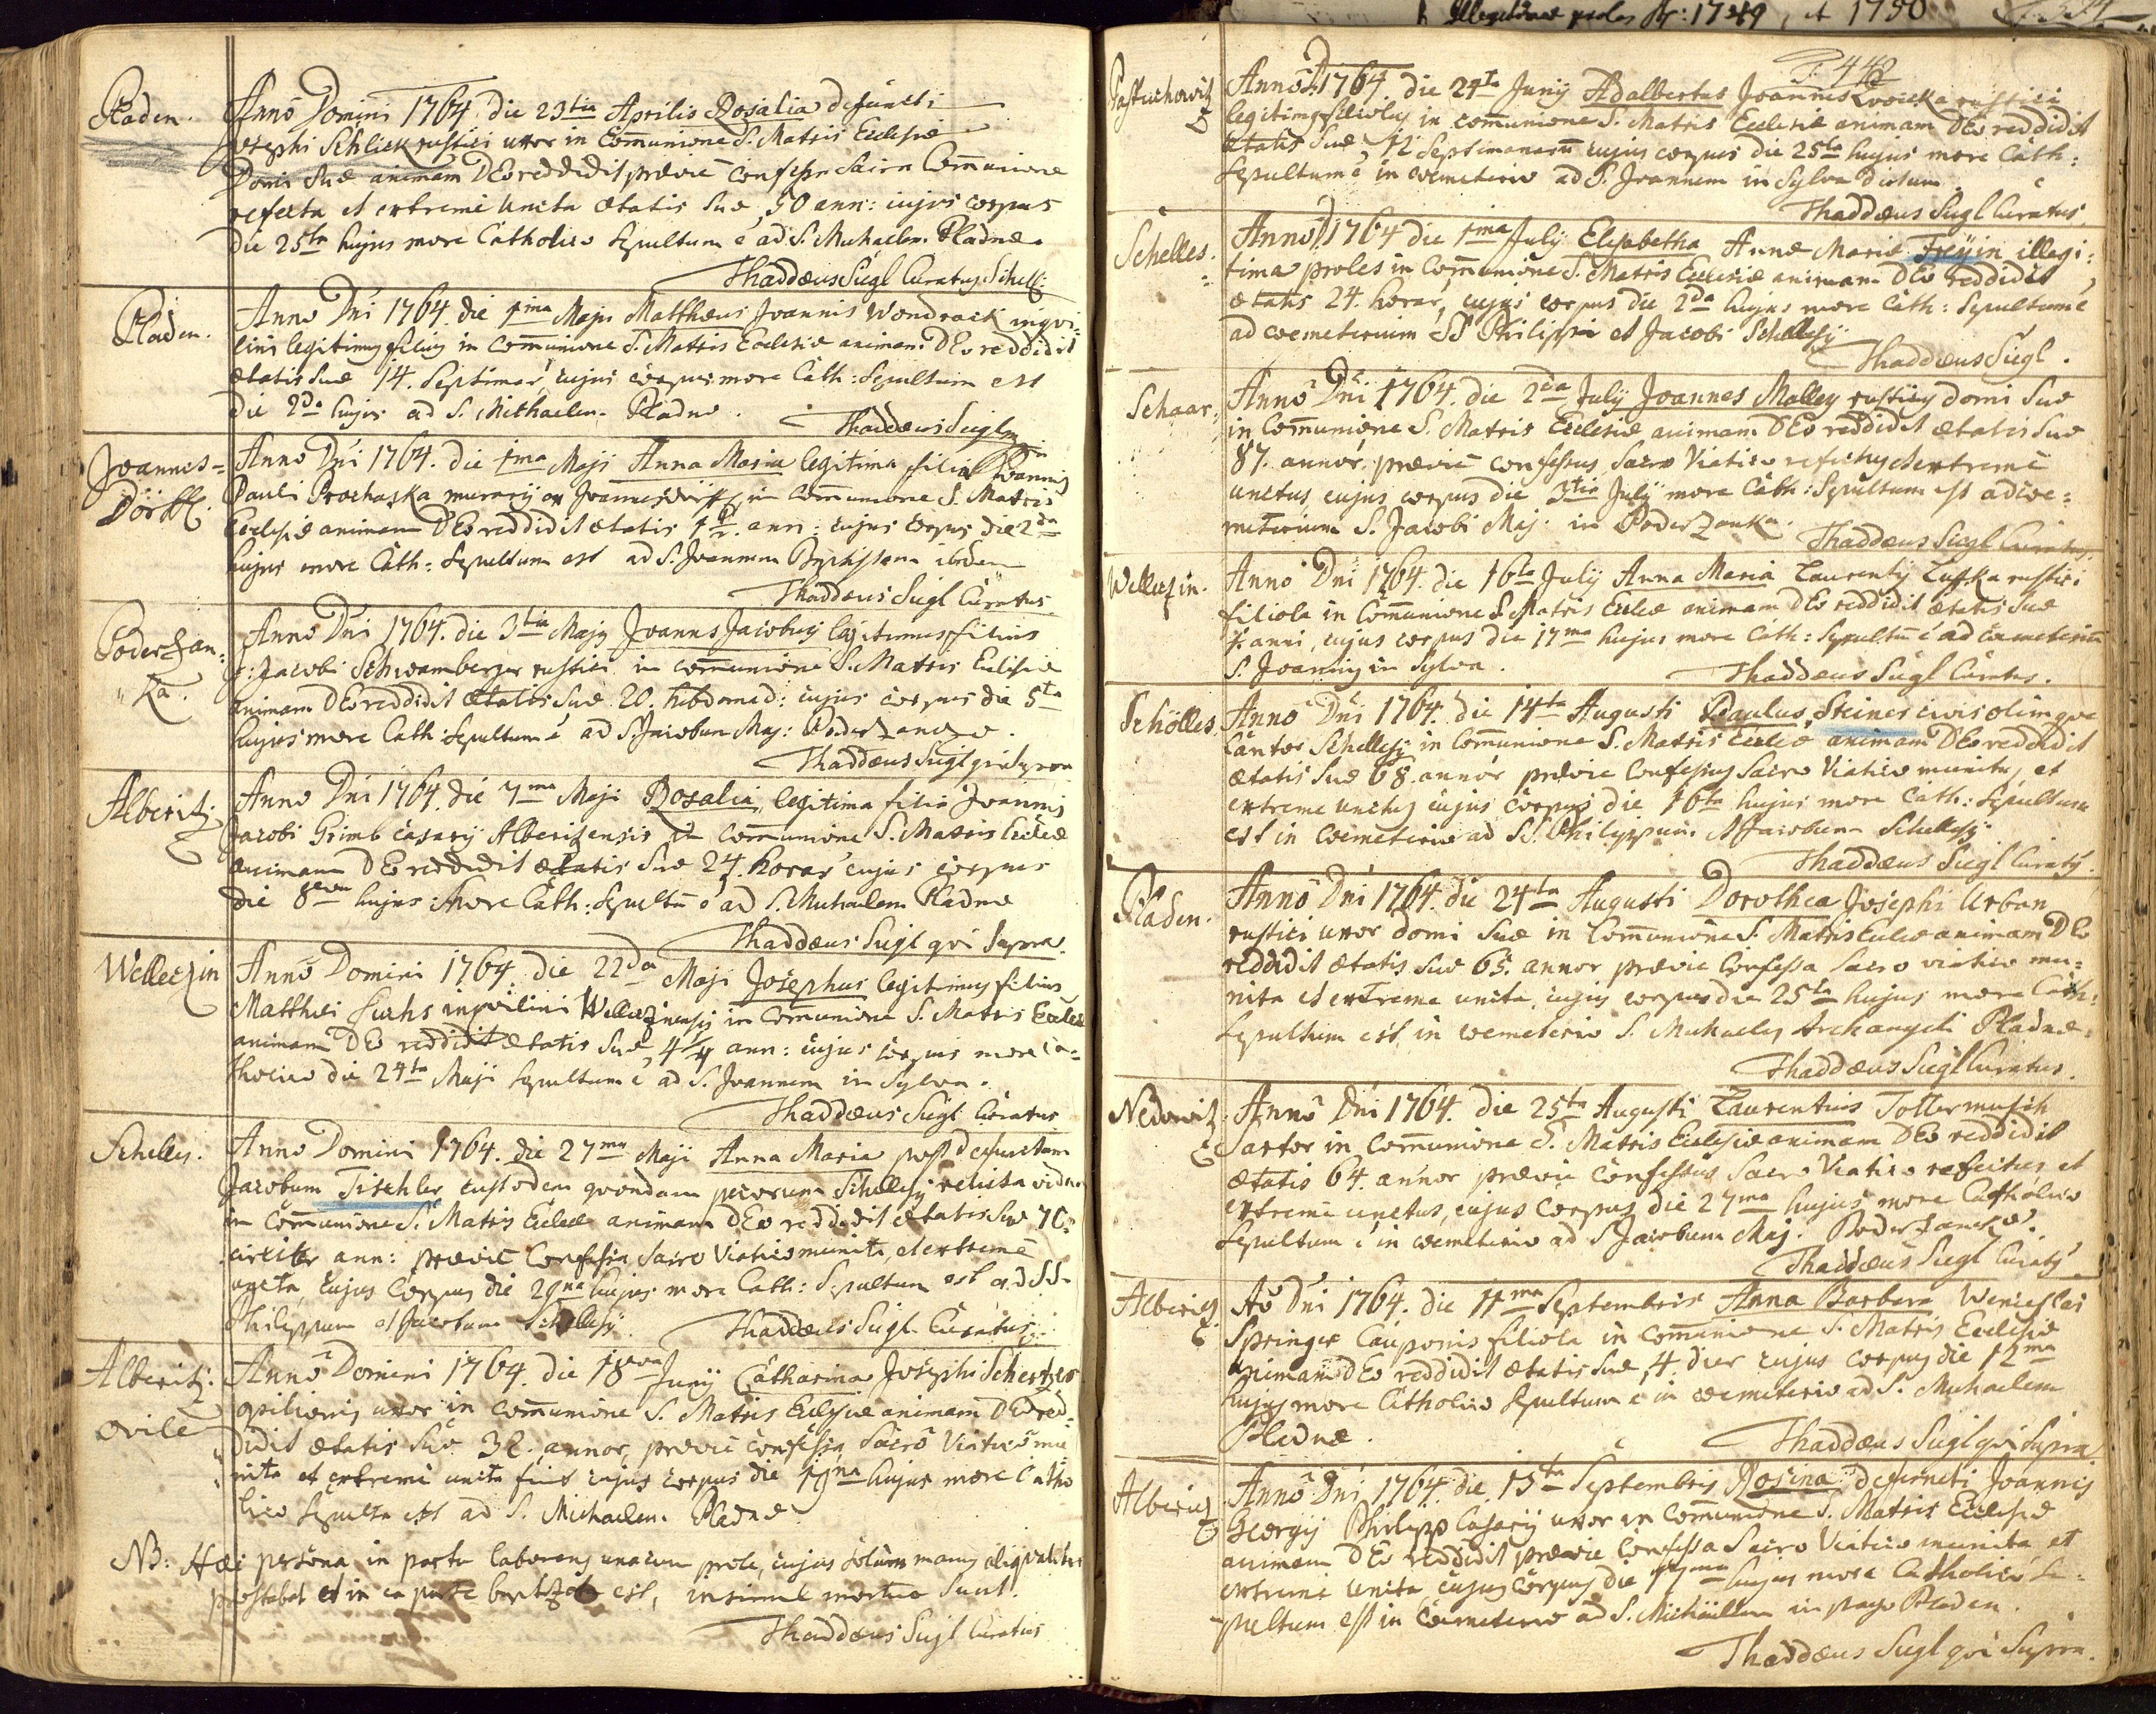 Pladen.
Anno Domini 1764 die 23tia Aprilis Rosalia defuncti
Josephi Schlick rustici uxor in Communione S. Matris Ecclesiæ
Domi suæ animam DEo reddidit præviè confessa Sacra Communione
refecta et extremè uncta ætatis suæ 50 ann: cujus corpus
die 25ta hujus more Catholico sepultum ẽ ad S. Michaelem Pladnæ.
Thaddæus Siegl Curatus Schell:
Pladen.
Anno Dni 1764. die 1ma Maji Matthæus Joannis Wondrack inqui-
lini legitimus filius in Communione S. Matris Ecclesiæ animam DEo reddidit
ætatis suæ 14. Septimar, cujus corpus more Cath: Sepultum est
die 2da hujus ad S. Michaelem Pladnæ.
Thaddæus Siegl
Joannes=
Dörffl.
Anno Dni 1764. die 1ma Maji Anna Maria legitima filia Joannis
Pauli Prochaska murarij ex Joannesdörffl in communione S. Matris
Ecclesiæ animam DEo reddidit ætatis 1 1/2 ann: cujus corpus die 2da
hujus more Cath: Sepultum est ad S. Joannem Baptistam ibidem
Thaddæus Siegl Curatus
Podersan=
ka.
Anno Dni 1764. die 3tia Maji Joannes Jacobus legitimus filius
Jacobi Schwamberger rustici in communione S. Matris Ecclesiæ
animam DEo reddidit ætatis suæ 20. hebdomad: cujus corpus die 5ta
hujus more Cath: Sepultum ẽ ad S. Jacobum Maj: Podersancæ.
Thaddæus Siegl qui Supra
Alberitz.
Anno Dni 1764. die 7ma Maji Rosalia, legitima filia Joannis
Jacobi Grimb casarij Alberitzensis in communione S. Matris Eccleæ
animam DEo reddidit ætatis suæ 24. horar cujus corpus
die 8ava hujus more Cath: Sepultũ ẽ ad S. Michaelem Pladnæ
Thaddæus Siegl qui Supra.
Welletzin
Anno Domini 1764. die 22da Maji Josephus legitimus filius
Matthæi Fuchs inquilini Welletzinensis in Communione S. Matris Eccleæ
animam DEo reddidit ætatis suæ, 4/4 ann: cujus corpus more Ca=
tholico die 24ta Maji Sepultum ẽ ad S. Joannem in Sylva.
Thaddæus Siegl Curatus
Schelles.
Anno Domini 1764. die 27ma Maji Anna Maria post defunctum
Jacobum Tischler custodem quondam pecorum Schellesij relicta vidua
in Communione S. Matris Eccleæ animam DEo reddidit ætatis suæ 70
circiter ann: præviè Confessa, Sacro Viatico munita, et extremè
uncta, cujus Corpus die 29na hujus more Cath: Sepultum est ad SS.
Philippum et Jacobum Schellesij
Thaddæus Siegl Curatus
Alberitz:
ovile
Anno Domini 1764. die 18ava Junij Catharina Josephi Schertzer
opilionis uxor in communione S. Matris Ecclesiæ animam DEo red=
didit ætatis suæ 32. annor, præviè confessa, Sacro Viatico mu
nita et extremè uncta fuit cujus corpus die 19na hujus more Catho
lico Sepulta est ad S. Michaelem Pladnæ
NB: Hæc persona in partu laborans unacum prole, cujus solum manus aliqualiter
prostabat et in ea parte baptizata est, insimul mortuæ sunt.
Thaddæus Siegl Curatus
Illegitimæ proles A: 1749, et 1750
P. 442
Anno D 1764. die 24ta Junij Adalbertus Joannis rustici
legitimus filiolus in communione S. Matris Ecclesiæ animam DEo reddidit
ætatis suæ 12 Septimanarũ cujus corpus die 25ta hujus more Cath:
Sepultum ẽ in cœmeterio ad S. Joannem in Sylva dictum.
Thaddæus Siegl Curatus.
Schelles.
Anno D 1764 die 1ma July Elisabetha Annæ Mariæ Freÿin illegi:
tima proles in Communione S. Matris Ecclesiæ animam DEo reddidit
ætatis 24. horar, cujus corpus die 2da hujus more Cath: Sepultum ẽ
ad cœmeterium SS Philippi et Jacobi Schellesij
Thaddæus Siegl.
Schaar.
Anno Dni 1764. die 2da July Joannes Malley rusticus domi suæ
in Communione S. Matris Ecclesiæ animam DEo reddidit ætatis suæ
87. annor. præviè confessus, Sacro Viatico refectus et extremè
unctus, cujus corpus die 3tia July more Cath: Sepultum est ad cœ=
meterium S. Jacobi Maj. in Podersanka.
Thaddæus Siegl Curatus.
Welletzin.
Anno Dni 1764. die 16ta July Anna Maria Laurentij Luffka rustici
filiola in Communione S. Matris Eccleæ animam DEo reddidit ætatis suæ
anni, cujus corpus die 17ma hujus more Cath: Sepultũ ẽ ad cœmeteriũ
S. Joannis in Sylva.
Thaddæus Siegl Curatus.
Schölles.
Anno Dni 1764. die 14ta Augusti Paulus Steiner civis olimque
Cantor Schellesij in Communione S. Matris Eccleæ animam DEo reddidit
ætatis suæ 68. annor præviè Confessus Sacro Viatico munitus, et
extreme unctus cujus corpus die 16ta hujus more Cath: Sepultum
est in cœmeterio ad SS. Philippum et Jacobum Schellesij
Thaddæus Siegl Curatus.
Pladen.
Anno Dni 1764. die 24ta Augusti Dorothea Josephi Urban
rustici uxor domi suæ in Communione S. Matris Eccleæ animam DEo
reddidit ætatis suæ 65. annor prævie Confessa Sacro viatico mu=
nita et extreme uncta, cujus corpus die 25ta hujus more Cath:
Sepultum est in cœmeterio S. Michaelis Archangeli Pladnæ.
Thaddæus Siegl Curatus.
Nedowitz.
Anno Dni 1764. die 25ta Augusti Laurentius Tollermusch
Sartor in Communione S. Matris Ecclesiæ animam DEo reddidit
ætatis 64. annor prævie Confessus Sacro Viatico refectus, et
extremè unctus, cujus Corpus die 27ma hujus more Catholico
Sepultum ẽ in cœmeterio ad S. Jacobum Maj. Podersancæ.
Thaddæus Siegl Curatus
Alberitz
Aõ Dni 1764. die 11ma Septembris Anna Barbara Wenceslai
Springer Cauponis filiola in Communione S. Matris Ecclesiæ
animam DEo reddidit ætatis suæ 4. dier cujus corpus die 12ma
hujus more Catholico Sepultum ẽ in cœmeterio ad S. Michaelem
Pladnæ.
Thaddæus Siegl qui Supra
Alberitz
Anno Dni 1764. die 15ta Septembris Rosina defuncti Joannis
Georgij Philipp Casarij uxor in Communione S. Matris Ecclesiæ
animam DEo reddidit prævie Confessa Sacro Viatico munita, et
extremè uncta cujus Corpus die 17ma hujus more Catholico Se=
pultum est in Cœmeterio ad S. Michaelem in pago Pladen.
Thaddæus Siegl qui Supra.